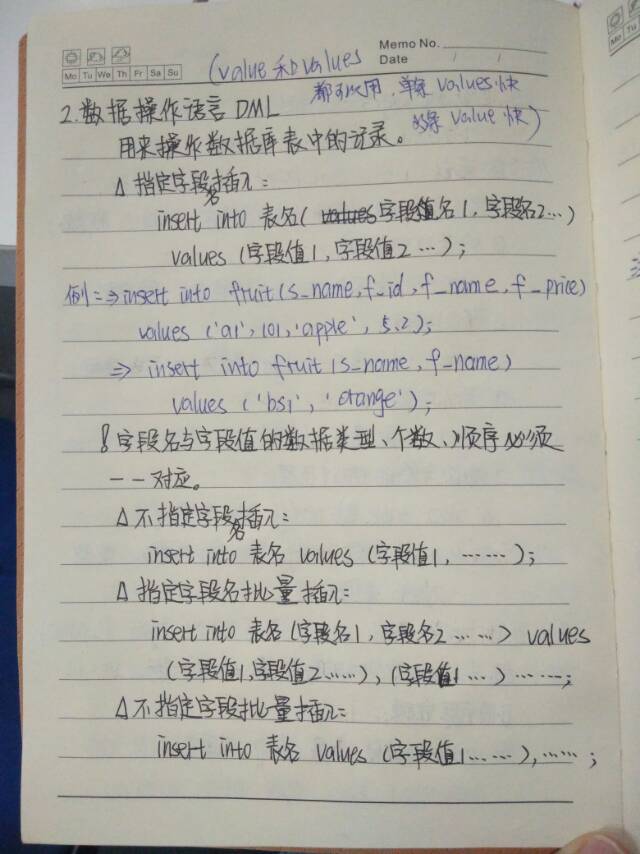 Memo No.
Mo Tu We Th Fr Sa Su
Date / /
(value和values
都可以用,单条values快
多条value快)
2.数据操作语言DML
用来操作数据库表中的记录。
△指定字段名插入:
insert into 表名(字段名1,字段名2…)
values (字段值1,字段值2…);
例:⇒insert into fruit(s_name,f_id,f_name,f_price)
values ('a1',101,'apple',5.2);
⇒ insert into fruit(s_name,f_name)
values ('bs1','orange');
字段名与字段值的数据类型、个数、顺序必须
一一对应。
△不指定字段名插入:
insert into 表名 values (字段值1,……);
△指定字段名批量插入:
insert into 表名(字段名1,字段名2……) values
(字段值1,字段值2……),(字段值1…)……;
△不指定字段批量插入:
insert into 表名 values (字段值1……),……;